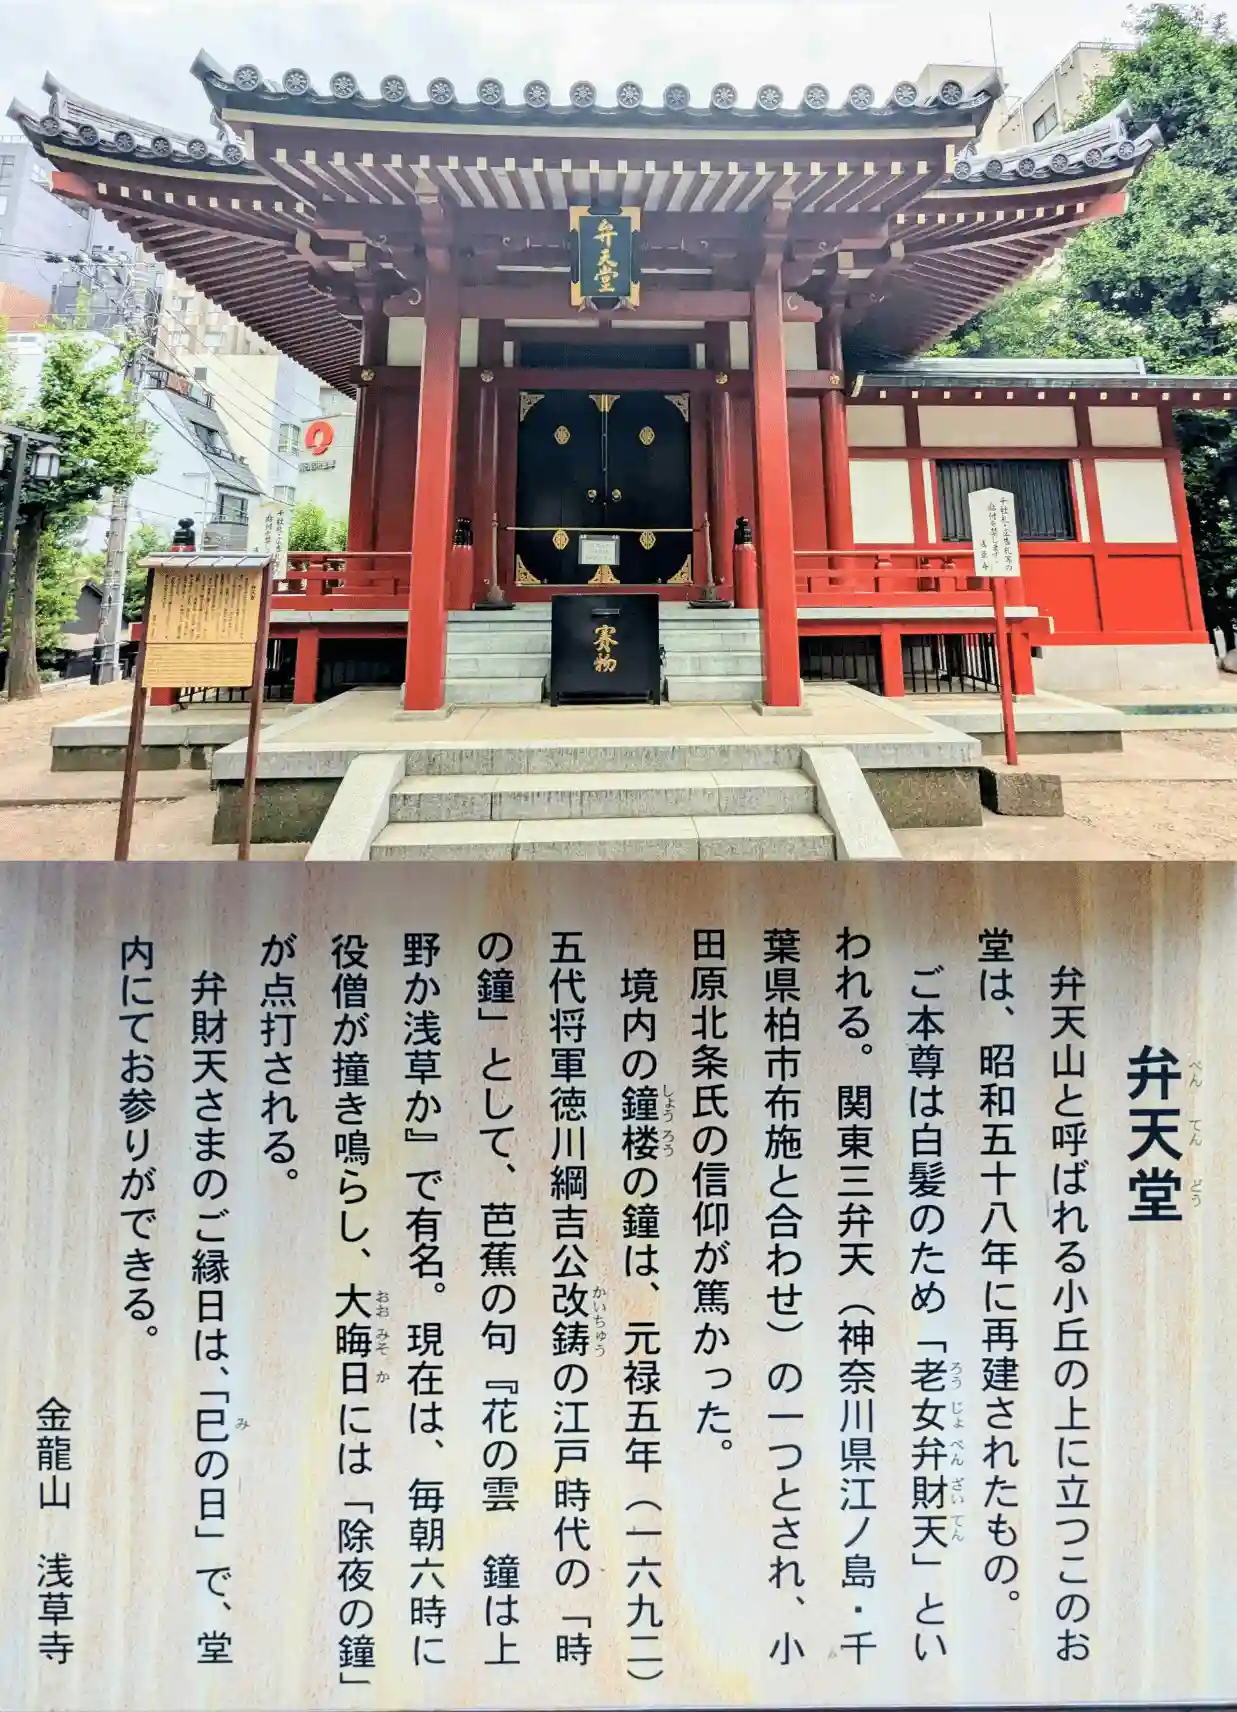 弁天堂
賽物
弁天堂
べんてんどう
弁天山と呼ばれる小丘の上に立つこのお
堂は、昭和五十八年に再建されたもの。
ご本尊は白髪のため「老女弁財天」とい
ろうじょべんざいてん
われる。関東三弁天（神奈川県江ノ島・千
葉県柏市布施と合わせ）の一つとされ、小
田原北条氏の信仰が篤かった。
境内の鐘楼の鐘は、元禄五年（一六九二）
しょうろう
五代将軍徳川綱吉公改鋳の江戸時代の「時
かいちゅう
の鐘」として、芭蕉の句『花の雲　鐘は上
野か浅草か』で有名。現在は、毎朝六時に
役僧が撞き鳴らし、大晦日には「除夜の鐘」
おおみそか
が点打される。
弁財天さまのご縁日は、「巳の日」で、堂
み
内にてお参りができる。
金龍山　浅草寺